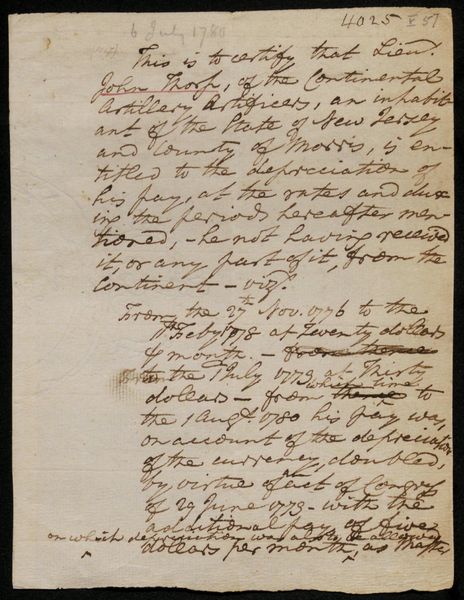 6 July 1780
4025
V 51
This is to certify that Lieut.
John Thorp, of the Continental
Artillery Artificers, an inhabit
ant of the State of New Jersey
and County of Morris, is en-
titled to the depreciation of
his pay, at the rates and dur
ing the periods hereafter men-
tioned, - he not having received
it, or any part of it, from the
Continent - vizt.
From the 27th Nov. 1776 to the
1st Feby 1778 at Twenty dollars
⅌ month. - from thence
to the 1 July 1779 at Thirty
dollars - from thence which time to
the 1 Augt. 1780 his pay was,
on account of the depreciation
of the currency, doubled,
by virtue of act of Congress
of 29 June 1779 - with the
additional pay of five
on which depreciation was also to be allowed
dollars per month, as